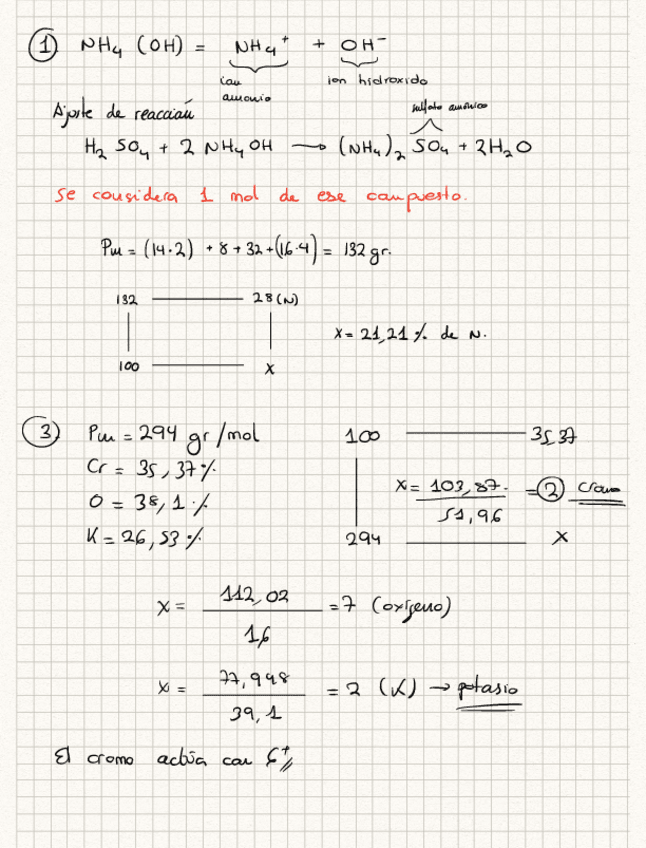 1 NH4 (OH) = NH4⁺ + OH⁻
ion amonio
ion hidroxido
Ajuste de reacción
sulfato amónico
H2 SO4 + 2 NH4OH → (NH4)2 SO4 + 2H2O
Se considera 1 mol de ese compuesto.
Pm = (14·2) + 8 + 32 + (16·4) = 132 gr.
132 —— 28 (N)
x = 21,21 % de N.
100 —— x
3 Pm = 294 gr/mol
Cr = 35,37 %
O = 38,1 %
K = 26,53 %
100 —— 35,37
x = 103,87 / 51,96 = 2 cromo
294 —— x
x = 112,02 / 16 = 7 (oxígeno)
x = 77,998 / 39,1 = 2 (K) → potasio
El cromo actúa con 6⁺